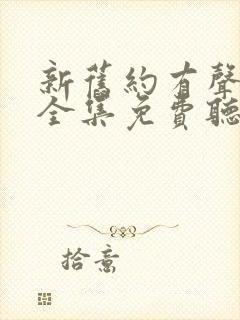 新舊約有聲
全集免費聽
拾意